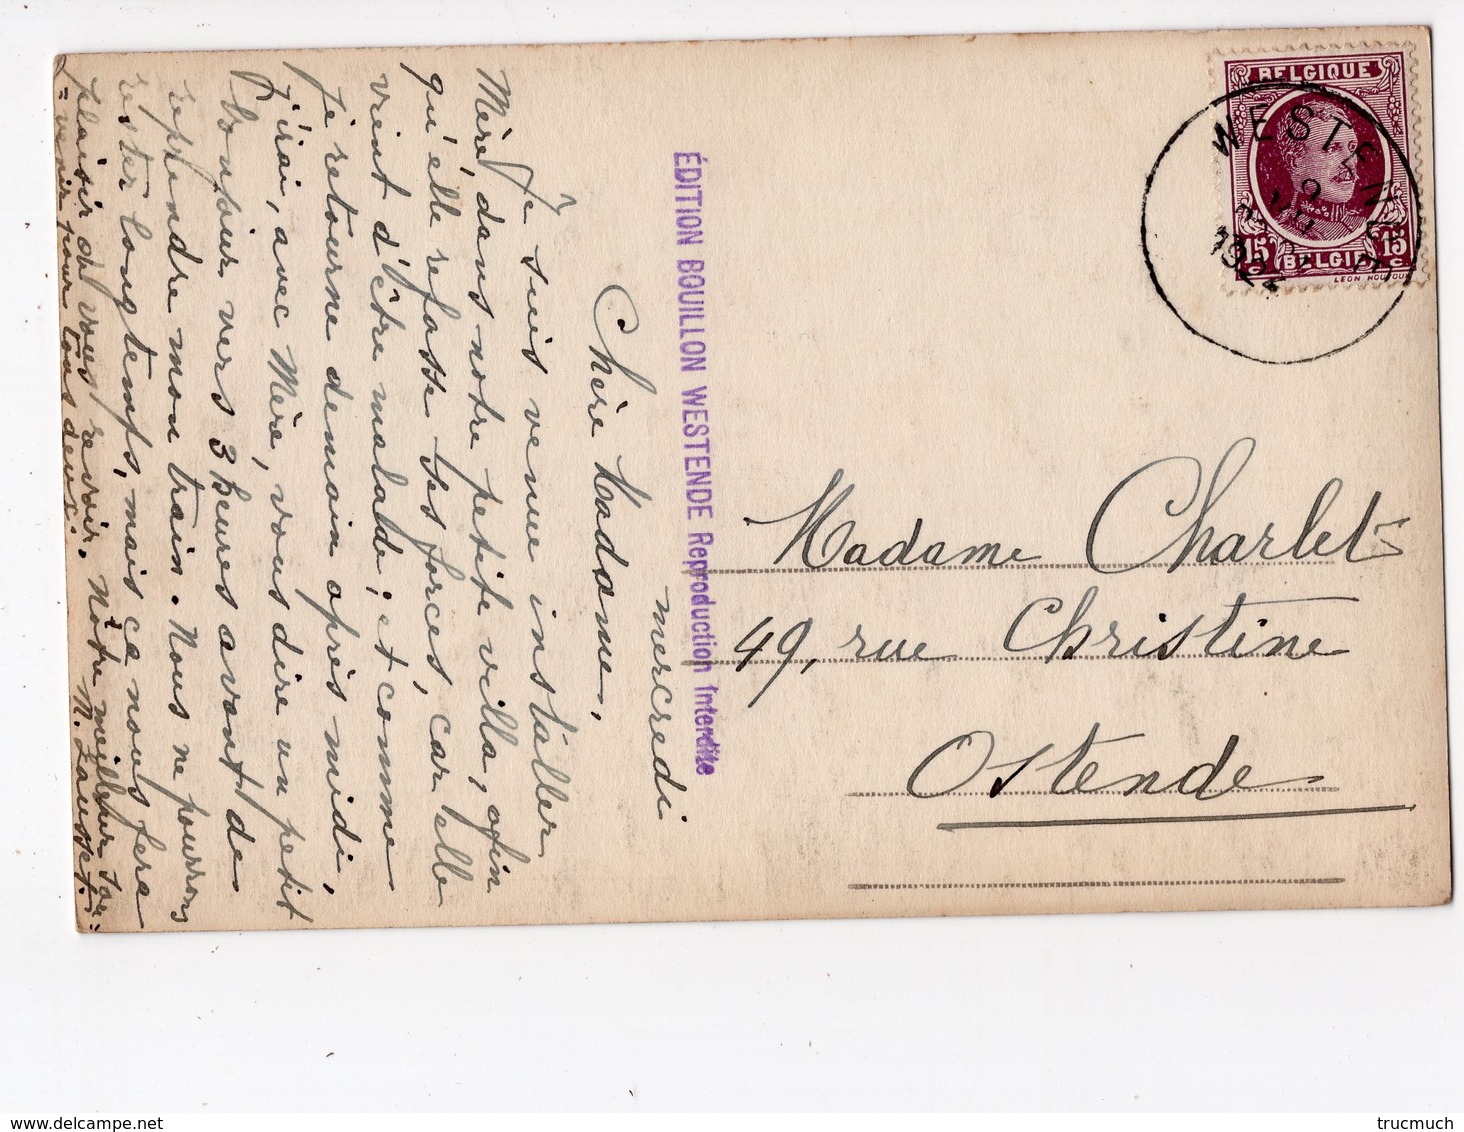 mercredi
Chère Madame,
Je suis venue installer
Mère, dans notre petite villa, afin
qu'elle refasse ses forces, car elle
vient d'être malade; et comme
je retourne demain après midi,
j'irai, avec Mère, vous dire un petit
bonjour vers 3 heures avant de
reprendre mon train. Nous ne pourrons
rester longtemps, mais ça nous fera
plaisir de vous revoir. Nôtre meilleur sou=
=venir pour tous deux.
ÉDITION BOUILLON WESTENDE Reproduction Interdite
BELGIQUE
15 c 15 c
BELGIË
LEON HOUYOUX
WESTENDE
Madame Charlet
49, rue Christine
Ostende
trucmuch